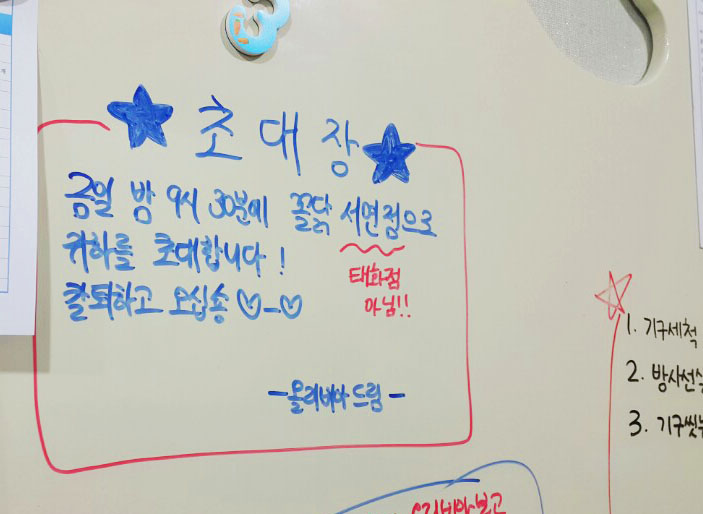 초대장
금일 밤 9시 30분에 꼴닭 서연점으로
귀하를 초대합니다!
태화점
아님!!
칼퇴하고 오십송 ♡-♡
-올리비아 드림-
1. 기구세척
2. 방사선실
3. 기구씻